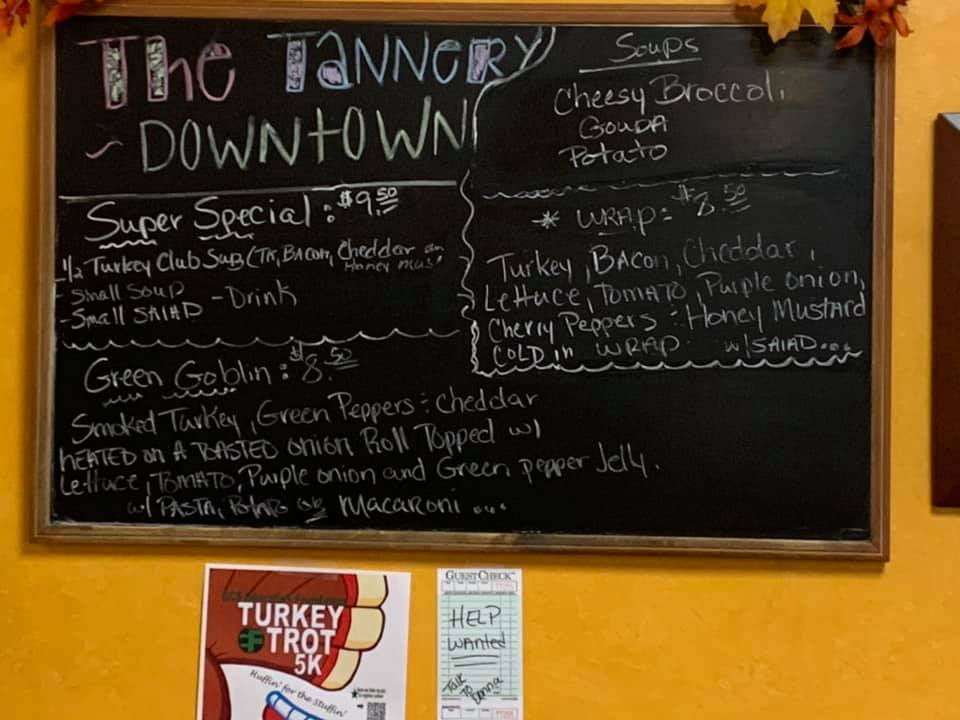 The Tannery
~ Downtown
Super Special: $9.50
1/2 Turkey Club Sub (TK, Bacon, Cheddar an
Honey Mus
- Small Soup
- Drink
- Small Salad
Green Goblin: $8.50
Smoked Turkey, Green Peppers : Cheddar
Heated on a Toasted Onion Roll Topped w/
Lettuce, Tomato, Purple onion and Green pepper Jelly.
w/ Pasta, Potato or Macaroni ...
Soups
Cheesy Broccoli
Gouda
Potato
* Wrap: $8.50
Turkey, Bacon, Cheddar,
Lettuce, Tomato, Purple onion,
Cherry Peppers : Honey Mustard
Cold in Wrap w/ Salad...
TURKEY
TROT
5K
Huffin' for the stuffin'
GUESTCHECK
HELP
Wanted
Talk
To
Donna